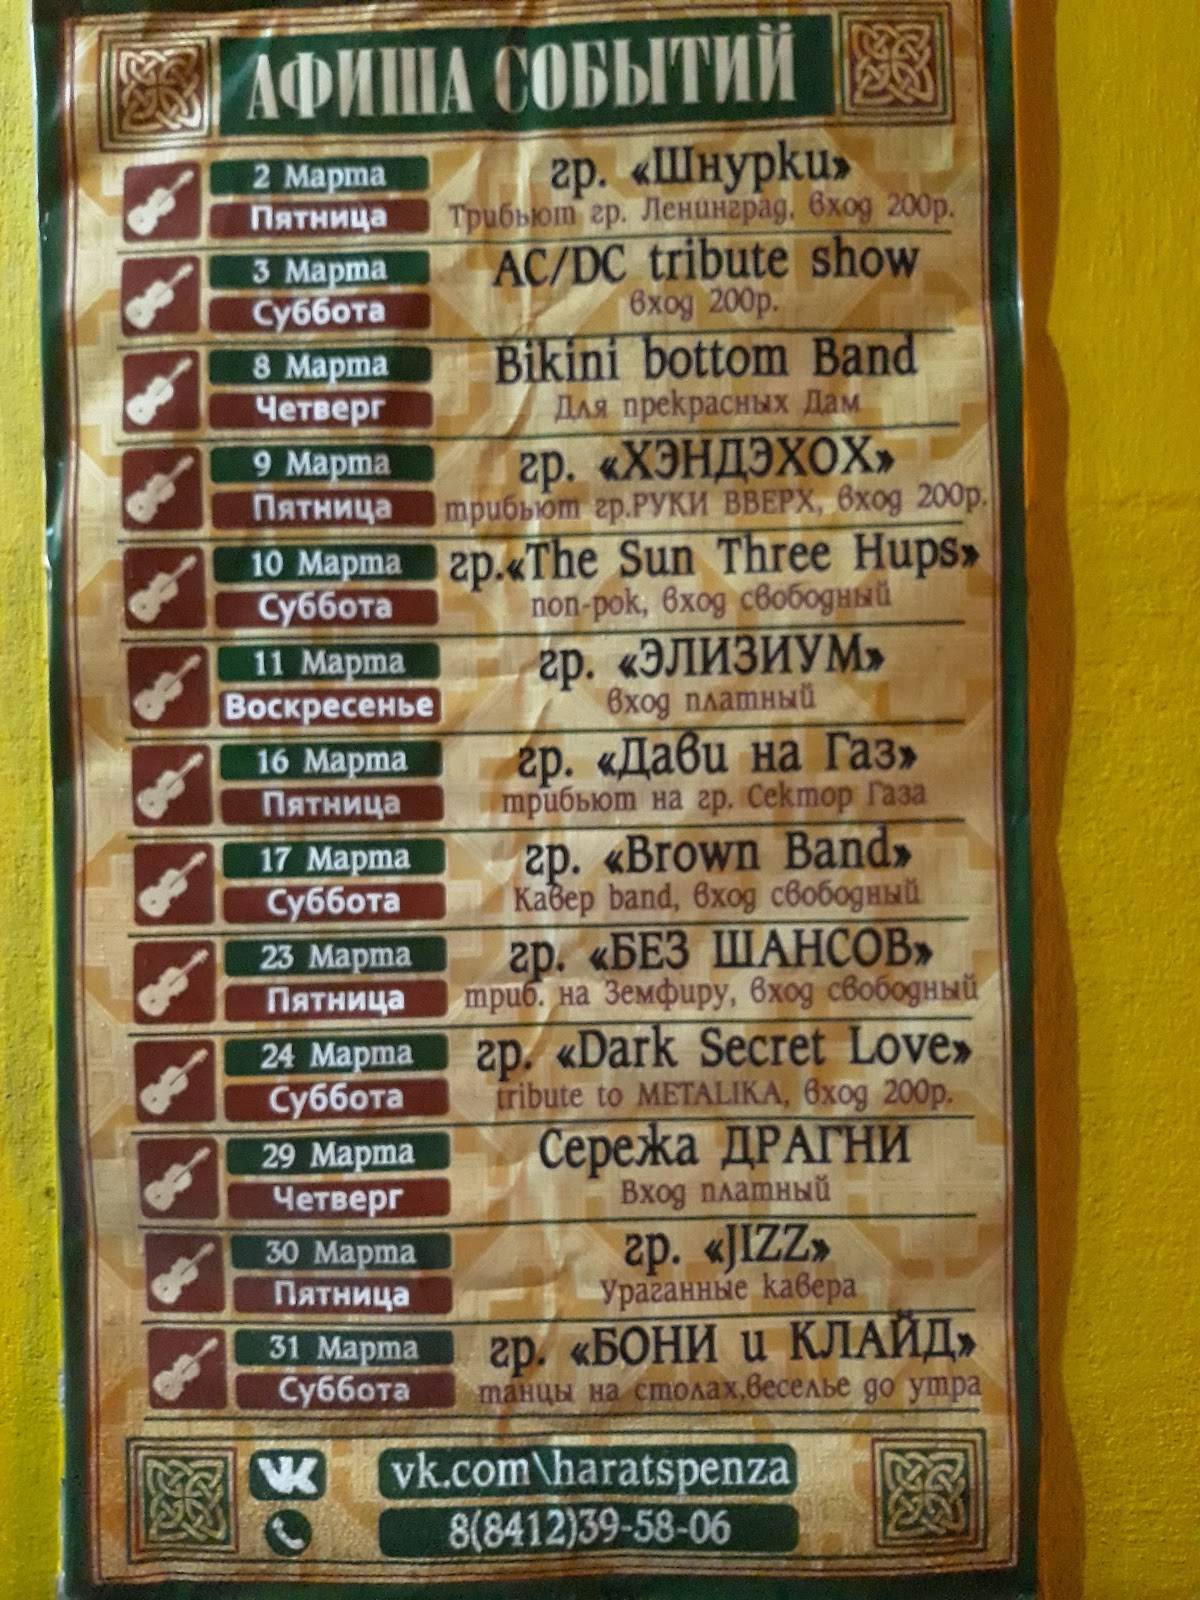 АФИША СОБЫТИЙ
2 Марта
Пятница
гр. «Шнурки»
Трибьют гр. Ленинград, вход 200р.
3 Марта
Суббота
AC/DC tribute show
вход 200р.
8 Марта
Четверг
Bikini bottom Band
Для прекрасных Дам
9 Марта
Пятница
гр. «ХЭНДЭХОХ»
трибьют гр.РУКИ ВВЕРХ, вход 200р.
10 Марта
Суббота
гр.«The Sun Three Hups»
поп-рок, вход свободный
11 Марта
Воскресенье
гр. «ЭЛИЗИУМ»
вход платный
16 Марта
Пятница
гр. «Дави на Газ»
трибьют на гр. Сектор Газа
17 Марта
Суббота
гр. «Brown Band»
Кавер band, вход свободный
23 Марта
Пятница
гр. «БЕЗ ШАНСОВ»
триб. на Земфиру, вход свободный
24 Марта
Суббота
гр. «Dark Secret Love»
tribute to METALIKA, вход 200р.
29 Марта
Четверг
Сережа ДРАГНИ
Вход платный
30 Марта
Пятница
гр. «JIZZ»
Ураганные кавера
31 Марта
Суббота
гр. «БОНИ и КЛАЙД»
танцы на столах,веселье до утра
vk.com\haratspenza
8(8412)39-58-06